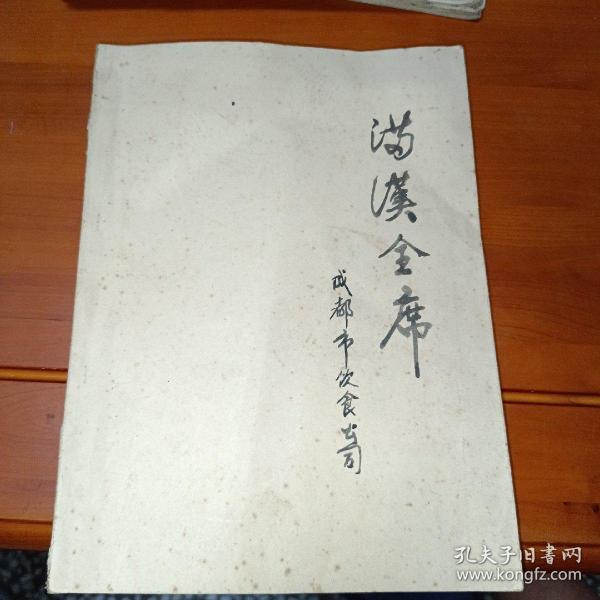 满漢全席
成都市饮食公司
孔夫子旧書网
www.kongfz.com